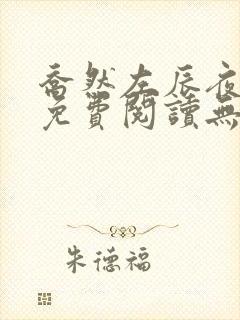 喬然左辰夜
免費閱讀無
朱德福